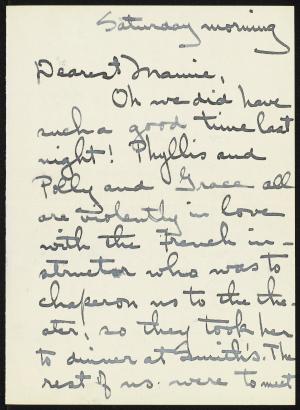 Saturday morning
Dearest Mamie,
Oh we did have
such a good time last
night! Phyllis and
Polly and Grace all
are violently in love
with the French in-
structor who was to
chaperon us to the the-
ater, so they took her
to dinner at Smith's. The
rest of us were to meet